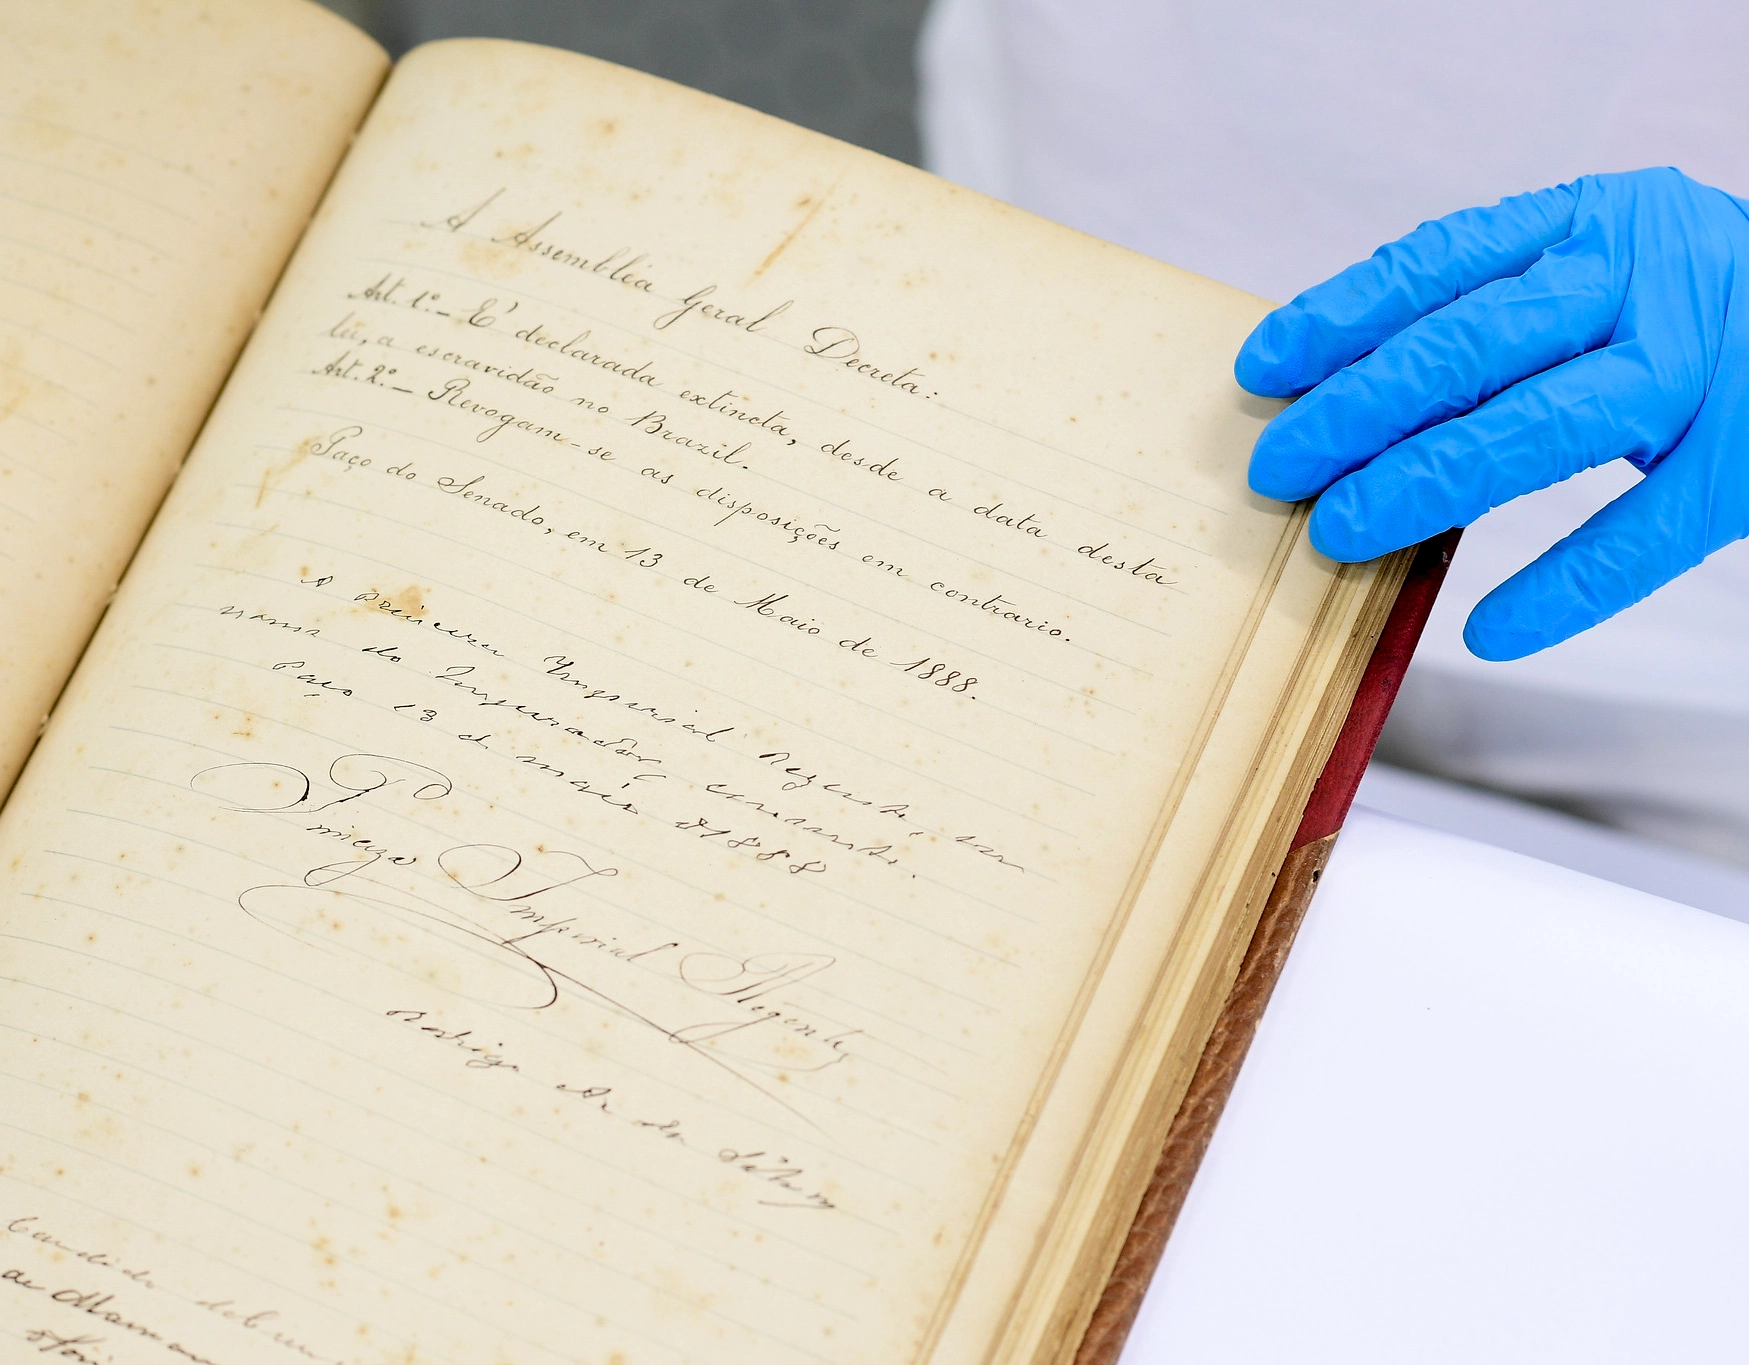 A Assembléa Geral Decreta:
Art. 1º.— E' declarada extincta, desde a data desta
lei, a escravidão no Brazil.
Art. 2º.— Revogam-se as disposições em contrario.
Paço do Senado, em 13 de Maio de 1888.
A princesa Imperial Regente, em
nome do Imperador, consente.
Paço 13 de maio de 1888
Princeza Imperial Regente
Rodrigo A. da Silva
Candido